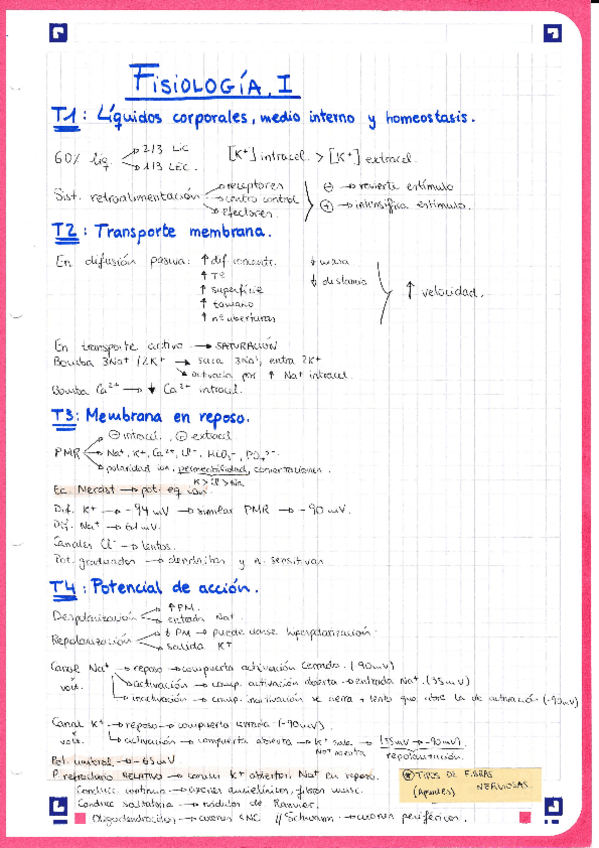 FISIOLOGÍA I
T1: Líquidos corporales, medio interno y homeostasis.
60% líq. → 2/3 LIC
→ 1/3 LEC.
[K+] intracel. > [K+] extracel.
Sist. retroalimentación → receptores
→ centro control
→ efectores.
⊖ → revierte estímulo
⊕ → intensifica estímulo.
T2: Transporte membrana.
En difusión pasiva: ↑ dif concentr.
↑ Tª
↑ superficie
↑ tamaño
↑ nº aberturas
↓ masa
↓ distancia
↑ velocidad.
En transporte activo → SATURACIÓN
Bomba 3Na+/2K+ → saca 3Na+, entra 2K+
→ activada por ↑ Na+ intracel.
Bomba Ca2+ → ↓ Ca2+ intracel.
T3: Membrana en reposo.
PMR → ⊖ intracel., ⊕ extracel
→ Na+, K+, Ca2+, Cl-, HCO3-, PO4 3-.
→ polaridad ion, permeabilidad, concentraciones.
K > Cl > Na
Ec. Nernst → pot. eq. ion.
Dif. K+ → -94 mV → similar PMR → -90 mV.
Dif. Na+ → 61 mV.
Canales Cl- → lentos.
Pot. graduados → dendritas y n. sensitivas
T4: Potencial de acción.
Despolarización → ↑ PM.
→ entrada Na+.
Repolarización → ↓ PM → puede darse hiperpolarización.
→ salida K+
Canal Na+ → reposo → compuerta activación cerrada. (-90mV)
volt. → activación → comp. activación abierta → entrada Na+. (35mV)
→ inactivación → comp. inactivación se cierra + lento que abre la de activación (-90mV)
Canal K+ → reposo → compuerta cerrada (-90mV).
volt. → activación → compuerta abierta → K+ sale. → (35mV → -90mV).
Na+ no entra
repolarización.
Pot. umbral → -65mV
P. refractario RELATIVO → canal K+ abierto, Na+ en reposo.
Conducc. continua → axones amielínicos, fibras musc.
Conducc. saltatoria → nódulos de Ranvier.
Oligodendrocitos → axones SNC // Schwann → axones periféricos.
* TIPOS DE FIBRAS
(Apuntes) NERVIOSAS.